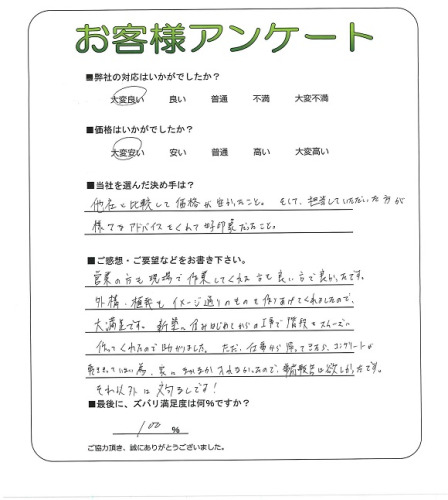 お客様アンケート
■弊社の対応はいかがでしたか？
大変良い 良い 普通 不満 大変不満
■価格はいかがでしたか？
大変安い 安い 普通 高い 大変高い
■当社を選んだ決め手は？
他社と比較して価格が安かったこと。そして、担当していただいた方が
様々なアドバイスをくれて好印象だったこと。
■ご感想・ご要望などをお書き下さい。
営業の方も現場で作業してくれた方も良い方で良かったです。
外構・植栽もイメージ通りのものを作りあげてくれましたので、
大満足です。新築に住みはじめてからの工事で階段をスムーズに
作ってくれたので助かりました。ただ、仕事から帰ってきたら、コンクリートが
為、家に なかなか 入れなかったので、 欲しかったです。
それ以外は 満足です！
■最後に、ズバリ満足度は何%ですか？
100 %
ご協力頂き、誠にありがとうございました。